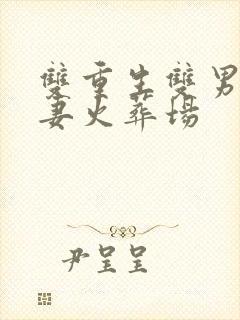 雙重生雙男
妻火葬場
尹呈呈